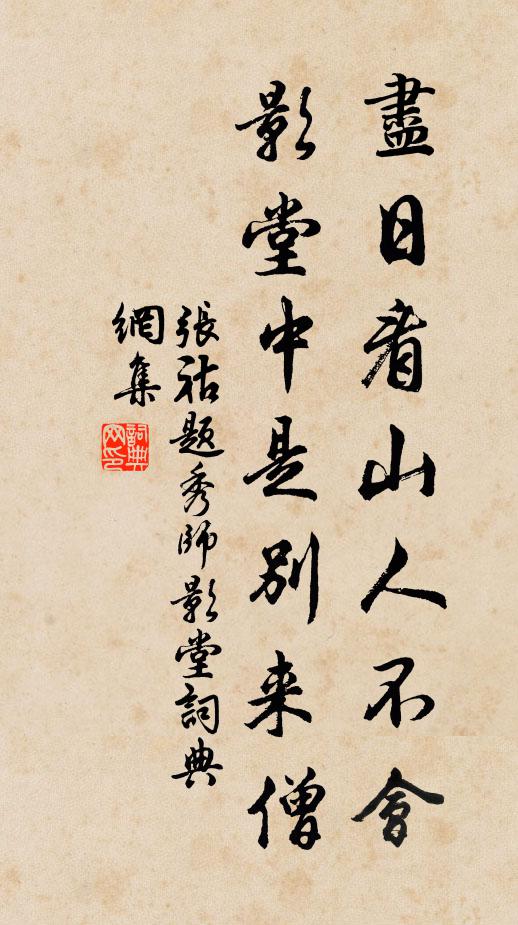 盡日看山人不會
影堂中是別来僧
張祜題秀師影堂詞典
網集
詞典
网印